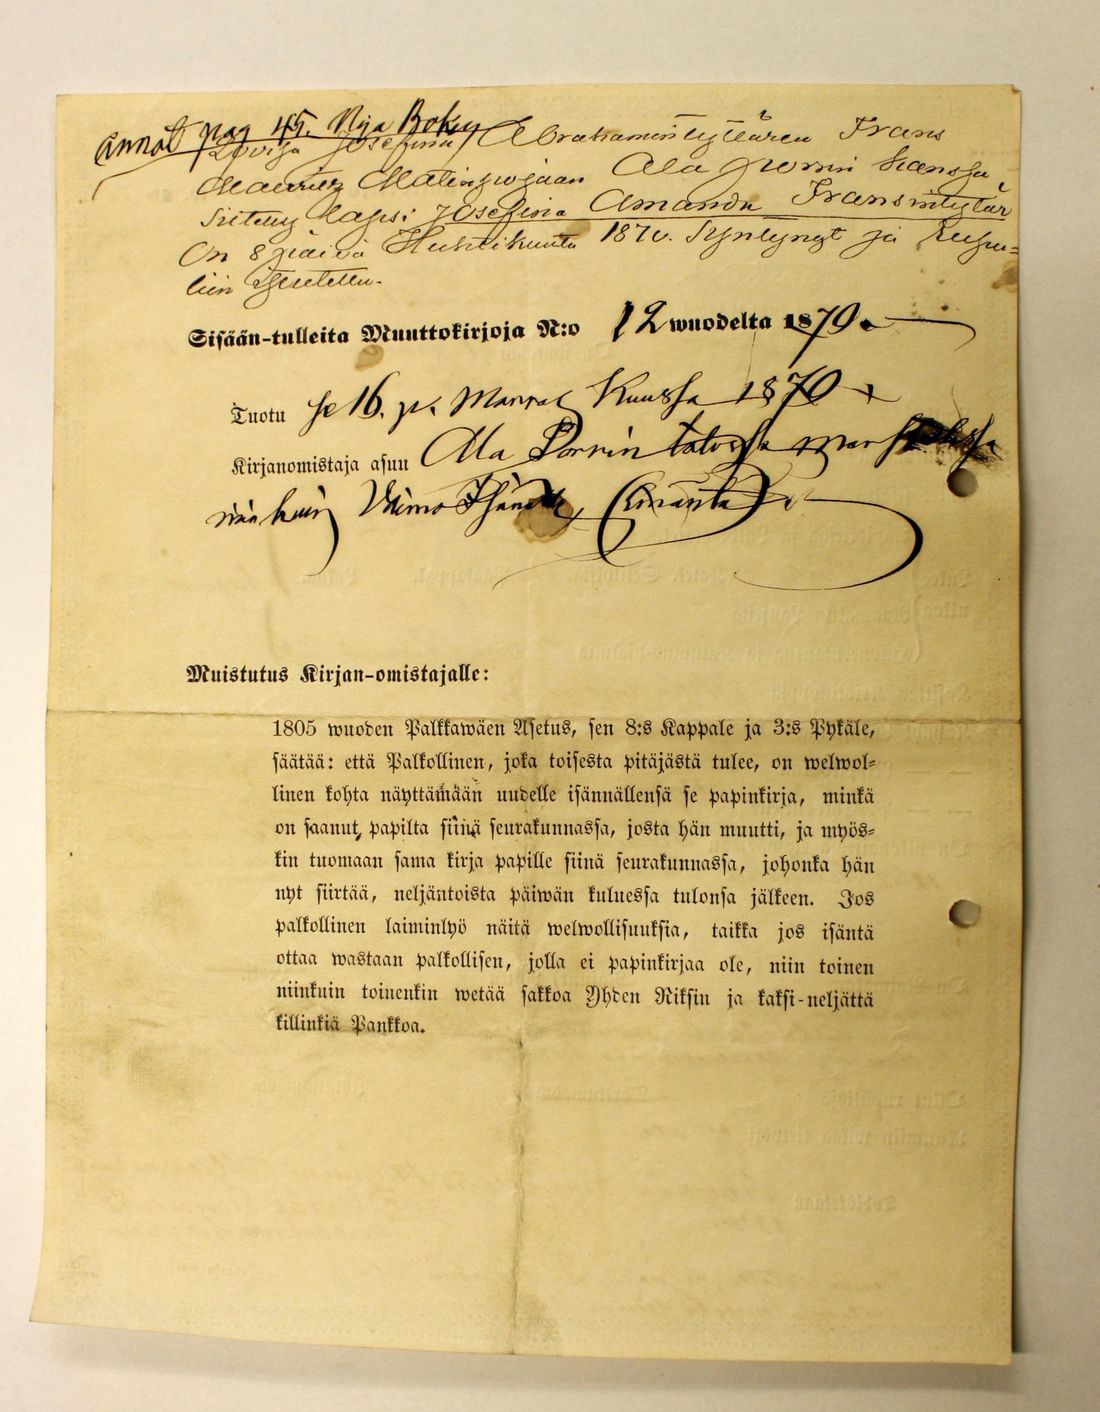 annot pag 45. Nya Boken
Lovisa Josefina Abrahamintyttären Frans
Mauritz Matinpojan Ala Porrin kanssa
siitetty lapsi Josefina Amanda Fransintytär
On 8 päivä Huhtikuuta 1870. Syntynyt ja
Sisään-tulleita Muuttokirjoja N:o 12 wuodelta 1870.
Tuotu se 16. p. Marras Kuussa 1870
Kirjanomistaja asuu Ala Porrin talossa
niin kuin Vaimo Emäntä
Muistutus Kirjan-omistajalle:
1805 wuoden Palkkawäen Asetus, sen 8:s Kappale ja 3:s Pykäle,
säätää: että Palkollinen, joka toisesta pitäjästä tulee, on welwol-
linen kohta näyttämään uudelle isännällensä se papinkirja, minkä
on saanut papilta siinä seurakunnassa, josta hän muutti, ja myös-
kin tuomaan sama kirja papille siinä seurakunnassa, johonka hän
nyt siirtää, neljäntoista päiwän kuluessa tulonsa jälkeen. Jos
palkollinen laiminlyö näitä welwollisuuksia, taikka jos isäntä
ottaa wastaan palkollisen, jolla ei papinkirjaa ole, niin toinen
niinkuin toinenkin wetää sakkoa Yhden Riksin ja kaksi-neljättä
killinkiä Pankkoa.